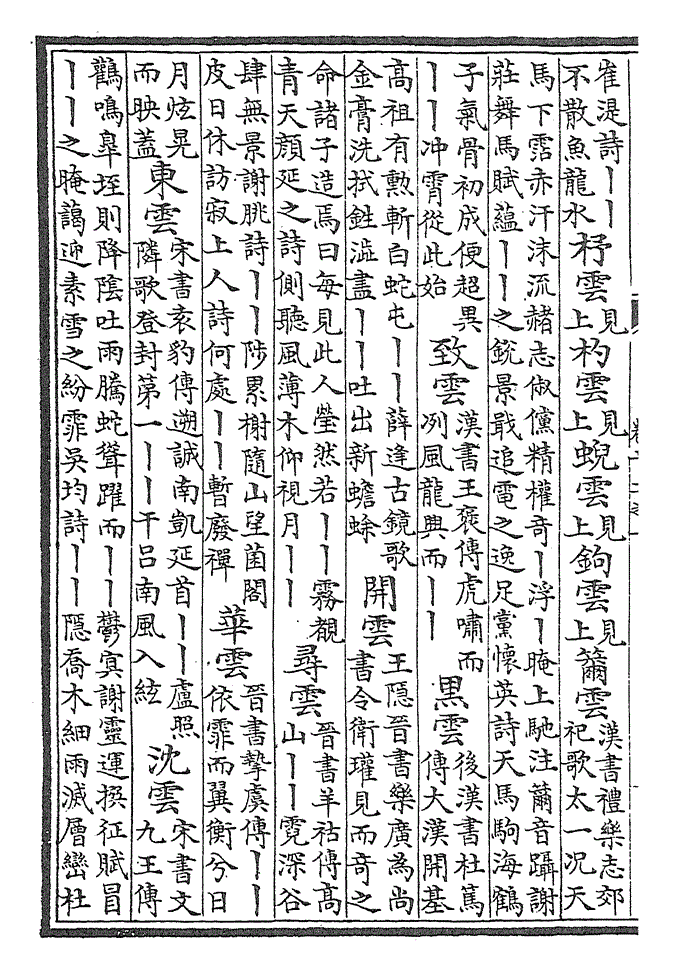 崔湜詩丨丨
不散魚龍水
杼雲
見
上
杓雲
見
上
蜺雲
見
上
鉤雲
見
上
籋雲
漢書禮樂志郊
祀歌太一況天
馬下霑赤汗沫流赭志俶儻精權奇丨浮丨晻上馳注籋音躡謝
莊舞馬賦蘊丨丨之銳景戢追電之逸足黨懷英詩天馬駒海鶴
子氣骨初成便超異
丨丨冲霄從此始
致雲
漢書王褒傳虎嘯而
冽風龍興而丨丨
黑雲
後漢書杜篤
傳大漢開基
高祖有勲斬白蛇屯丨丨薛逢古鏡歌
金膏洗拭鉎澁盡丨丨吐出新蟾蜍
開雲
王隱晉書樂廣為尚
書令衛瓘見而奇之
命諸子造焉曰每見此人瑩然若丨丨霧覩
青天顔延之詩側聽風薄木仰視月丨丨
尋雲
晉書羊祜傳高
山丨丨霓深谷
肆無景謝朓詩丨丨陟累榭隨山望菌閣
皮日休訪寂上人詩何處丨丨暫廢禪
華雲
晉書摯虞傳丨丨
依霏而翼衡兮日
月炫晃
而映蓋
東雲
宋書袁豹傳遡誠南凱延首丨丨盧照
隣歌登封第一丨丨干呂南風入絃
沈雲
宋書文
九王傳
鸛鳴臯垤則降陰吐雨騰蛇聳躍而丨丨鬱㝠謝靈運撰征賦冒
丨丨之晻藹迎素雪之紛霏吳均詩丨丨隱喬木細雨滅層巒杜